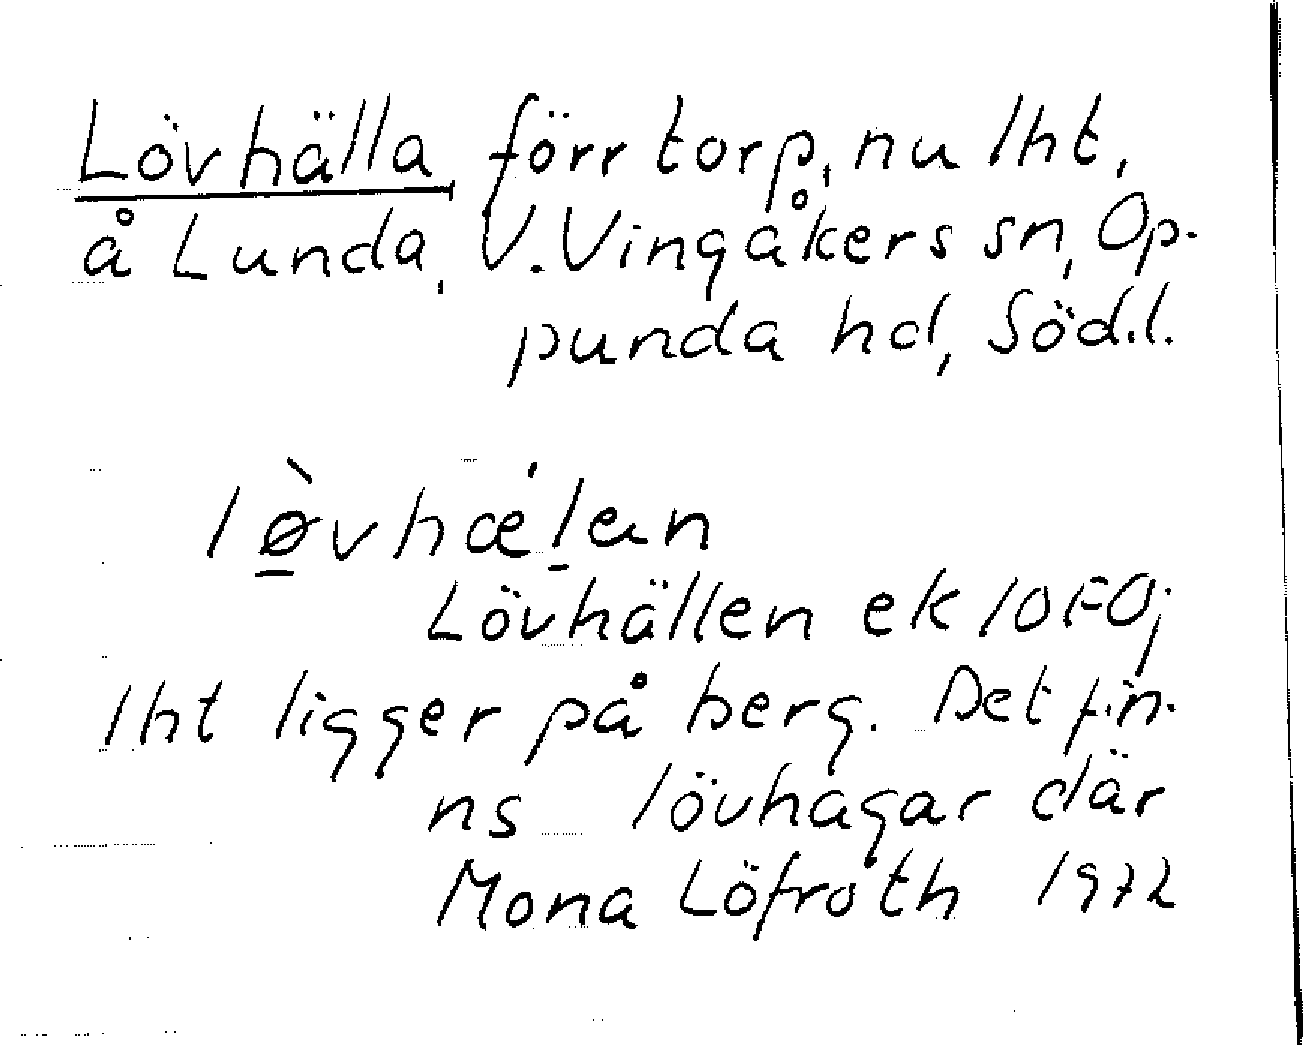 Lövhälla, förr torp, nu lht,
å Lunda, V. Vingåkers sn, Op-
punda hd, Söd.l.
lø̀vhæ´len
Lövhällen ek 10F0j
lht ligger på berg. Det fin-
ns lövhagar där
Mona Löfroth 1972